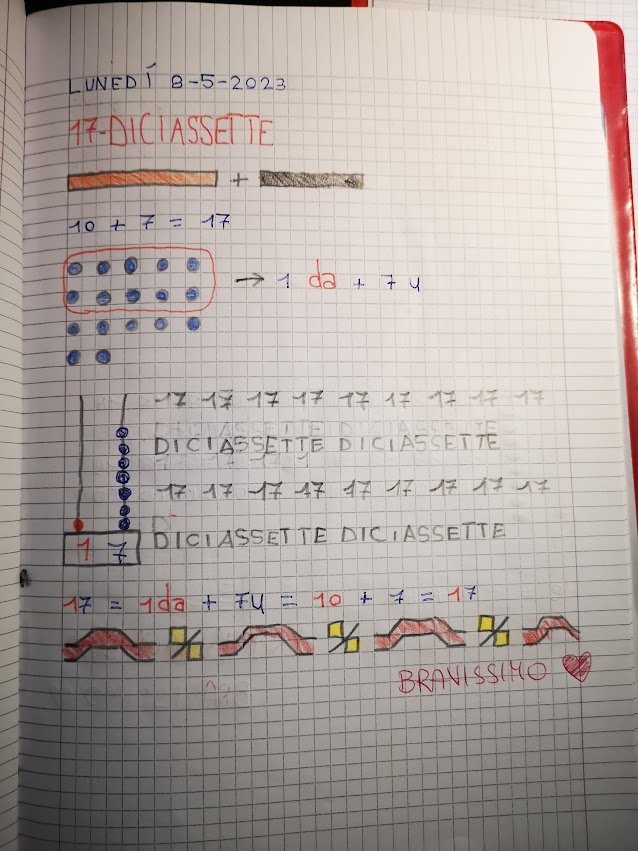 LUNEDÍ 8-5-2023
17-DICIASSETTE
+
10 + 7 = 17
→ 1 da + 7 u
17 17 17 17 17 17 17 17 17
DICIASSETTE DICIASSETTE
17 17 17 17 17 17 17 17 17
DICIASSETTE DICIASSETTE
1 7
17 = 1da + 7u = 10 + 7 = 17
BRAVISSIMO